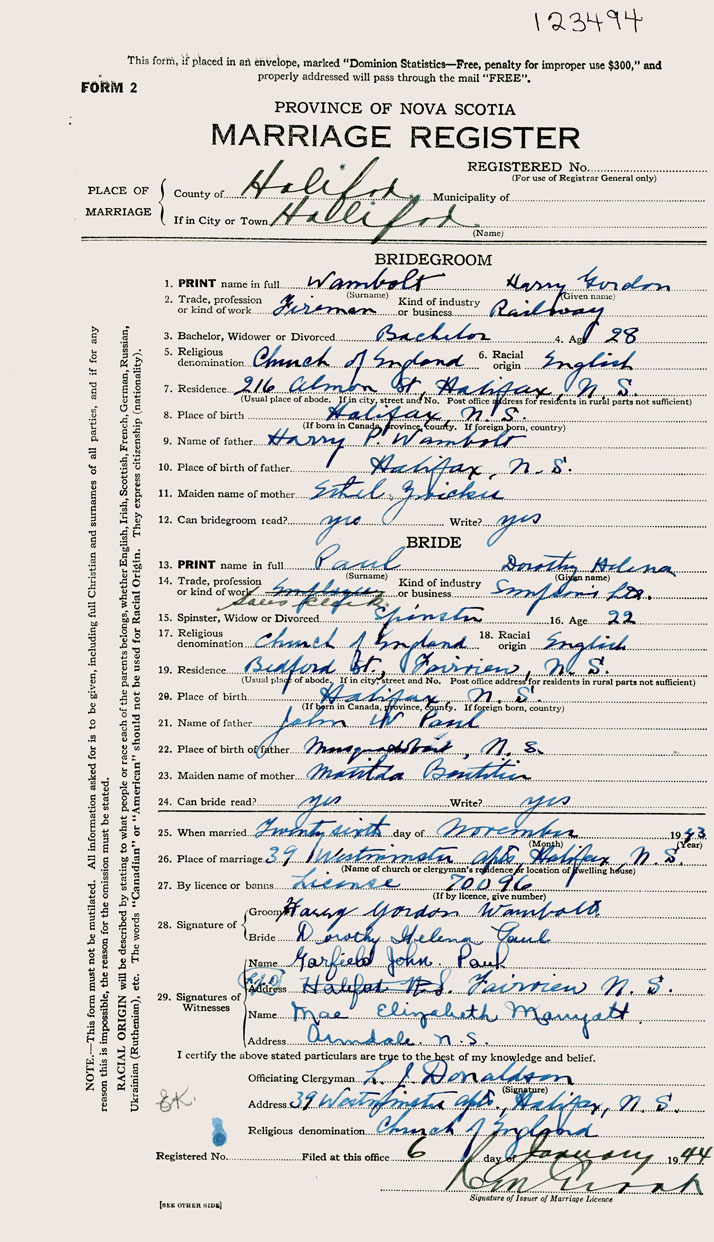 123494
This form, if placed in an envelope, marked "Dominion Statistics—Free, penalty for improper use $300," and
properly addressed will pass through the mail "FREE".
FORM 2
PROVINCE OF NOVA SCOTIA
MARRIAGE REGISTER
REGISTERED No.
(For use of Registrar General only)
PLACE OF MARRIAGE
County of Halifax Municipality of
If in City or Town Halifax
(Name)
BRIDEGROOM
1. PRINT name in full Wambolt Harry Gordon
(Surname) (Given name)
2. Trade, profession or kind of work Fireman Kind of industry or business Railway
3. Bachelor, Widower or Divorced Bachelor 4. Age 28
5. Religious denomination Church of England 6. Racial origin English
7. Residence 216 Almon St, Halifax, N.S.
(Usual place of abode. If in city, street and No. Post office address for residents in rural parts not sufficient)
8. Place of birth Halifax, N.S.
(If born in Canada, province, county. If foreign born, country)
9. Name of father Harry P. Wambolt
10. Place of birth of father Halifax, N.S.
11. Maiden name of mother Ethel
12. Can bridegroom read? yes Write? yes
BRIDE
13. PRINT name in full Paul Dorothy Helena
(Surname) (Given name)
14. Trade, profession or kind of work Employee Kind of industry or business Simpson's Ltd.
Sales clerk
15. Spinster, Widow or Divorced Spinster 16. Age 22
17. Religious denomination Church of England 18. Racial origin English
19. Residence Bedford St, Fairview, N.S.
(Usual place of abode. If in city, street and No. Post office address for residents in rural parts not sufficient)
20. Place of birth Halifax, N.S.
(If born in Canada, province, county. If foreign born, country)
21. Name of father John W Paul
22. Place of birth of father Musquodoboit, N.S.
23. Maiden name of mother Matilda Boutilier
24. Can bride read? yes Write? yes
25. When married Twenty sixth day of November 1943
(Month) (Year)
26. Place of marriage 39 Westminster apts, Halifax, N.S.
(Name of church or clergyman's residence or location of dwelling house)
27. By licence or banns License 70096
(If by licence, give number)
28. Signature of
Groom Harry Gordon Wambolt
Bride Dorothy Helena Paul
29. Signatures of Witnesses
Name Garfield John Paul
Address Halifax N.S. Fairview N.S.
Name Mae Elizabeth Marryatt
Address Armdale N.S.
I certify the above stated particulars are true to the best of my knowledge and belief.
Officiating Clergyman L. J. Donaldson
(Signature)
Address 39 Westminster apts, Halifax, N.S.
Religious denomination Church of England
Registered No. Filed at this office 6 day of January 1944
Signature of Issuer of Marriage Licence
[SEE OTHER SIDE]
NOTE.—This form must not be mutilated. All information asked for is to be given, including full Christian and surnames of all parties, and if for any
reason this is impossible, the reason for the omission must be stated.
RACIAL ORIGIN will be described by stating to what people or race each of the parents belongs, whether English, Irish, Scottish, French, German, Russian,
Ukrainian (Ruthenian), etc. The words "Canadian" or "American" should not be used for Racial Origin. They express citizenship (nationality).